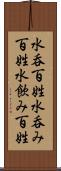 水呑百姓水呑み
百姓水飲み百姓